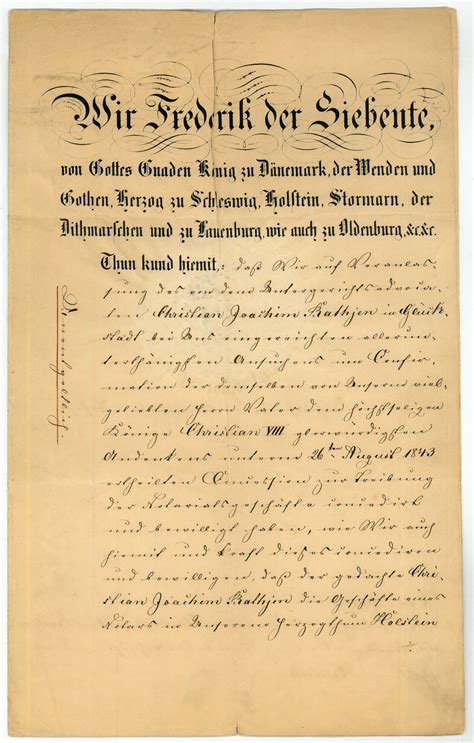 Wir Frederik der Siebente,
von Gottes Gnaden König zu Dänemark, der Wenden und
Gothen, Herzog zu Schleswig, Holstein, Stormarn, der
Dithmarschen und zu Lauenburg, wie auch zu Oldenburg, &c&c.
Thun kund hiemit, daß Wir auf Veranlas-
sung des von dem Untergerichtsadvoca-
ten Christian Joachim Rathjen in Glück-
stadt bei Uns eingereichten allerun-
terthänigsten Ansuchens um Confir-
mation der demselben von Unserm viel-
geliebten Herrn Vater dem höchstseligen
Könige Christian VIII glorwürdigsten
Andenkens unterm 26ten August 1843
ertheilten Concession zur Treibung
der Notariatsgeschäfte concedirt
und bewilligt haben, wie Wir auch
hiemit und kraft dieses concediren
und bewilligen, daß der gedachte Chri-
stian Joachim Rathjen die Geschäfte eines
Notars in Unserem Herzogthum Holstein
Unentgeltlich.